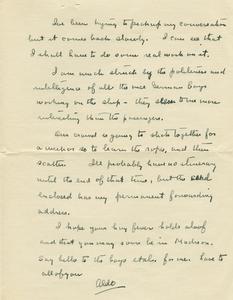 I've been trying to pick up my conversation
but it comes back slowly. I can see that
I shall have to do some real work on it.
I am much struck by the politeness and
intelligence of all the nice German boys
working on the ship – they seem to me more
interesting than the passengers.
Our crowd is going to stick together for
a week or so to learn the ropes, and then
scatter. I'll probably have no itinerary
until the end of that time, but the
enclosed has my permanent forwarding
address.
I hope your hay fever holds aloof
and that you may soon be in Madison.
Say hello to the boys for me. Love to
all of you
Aldo